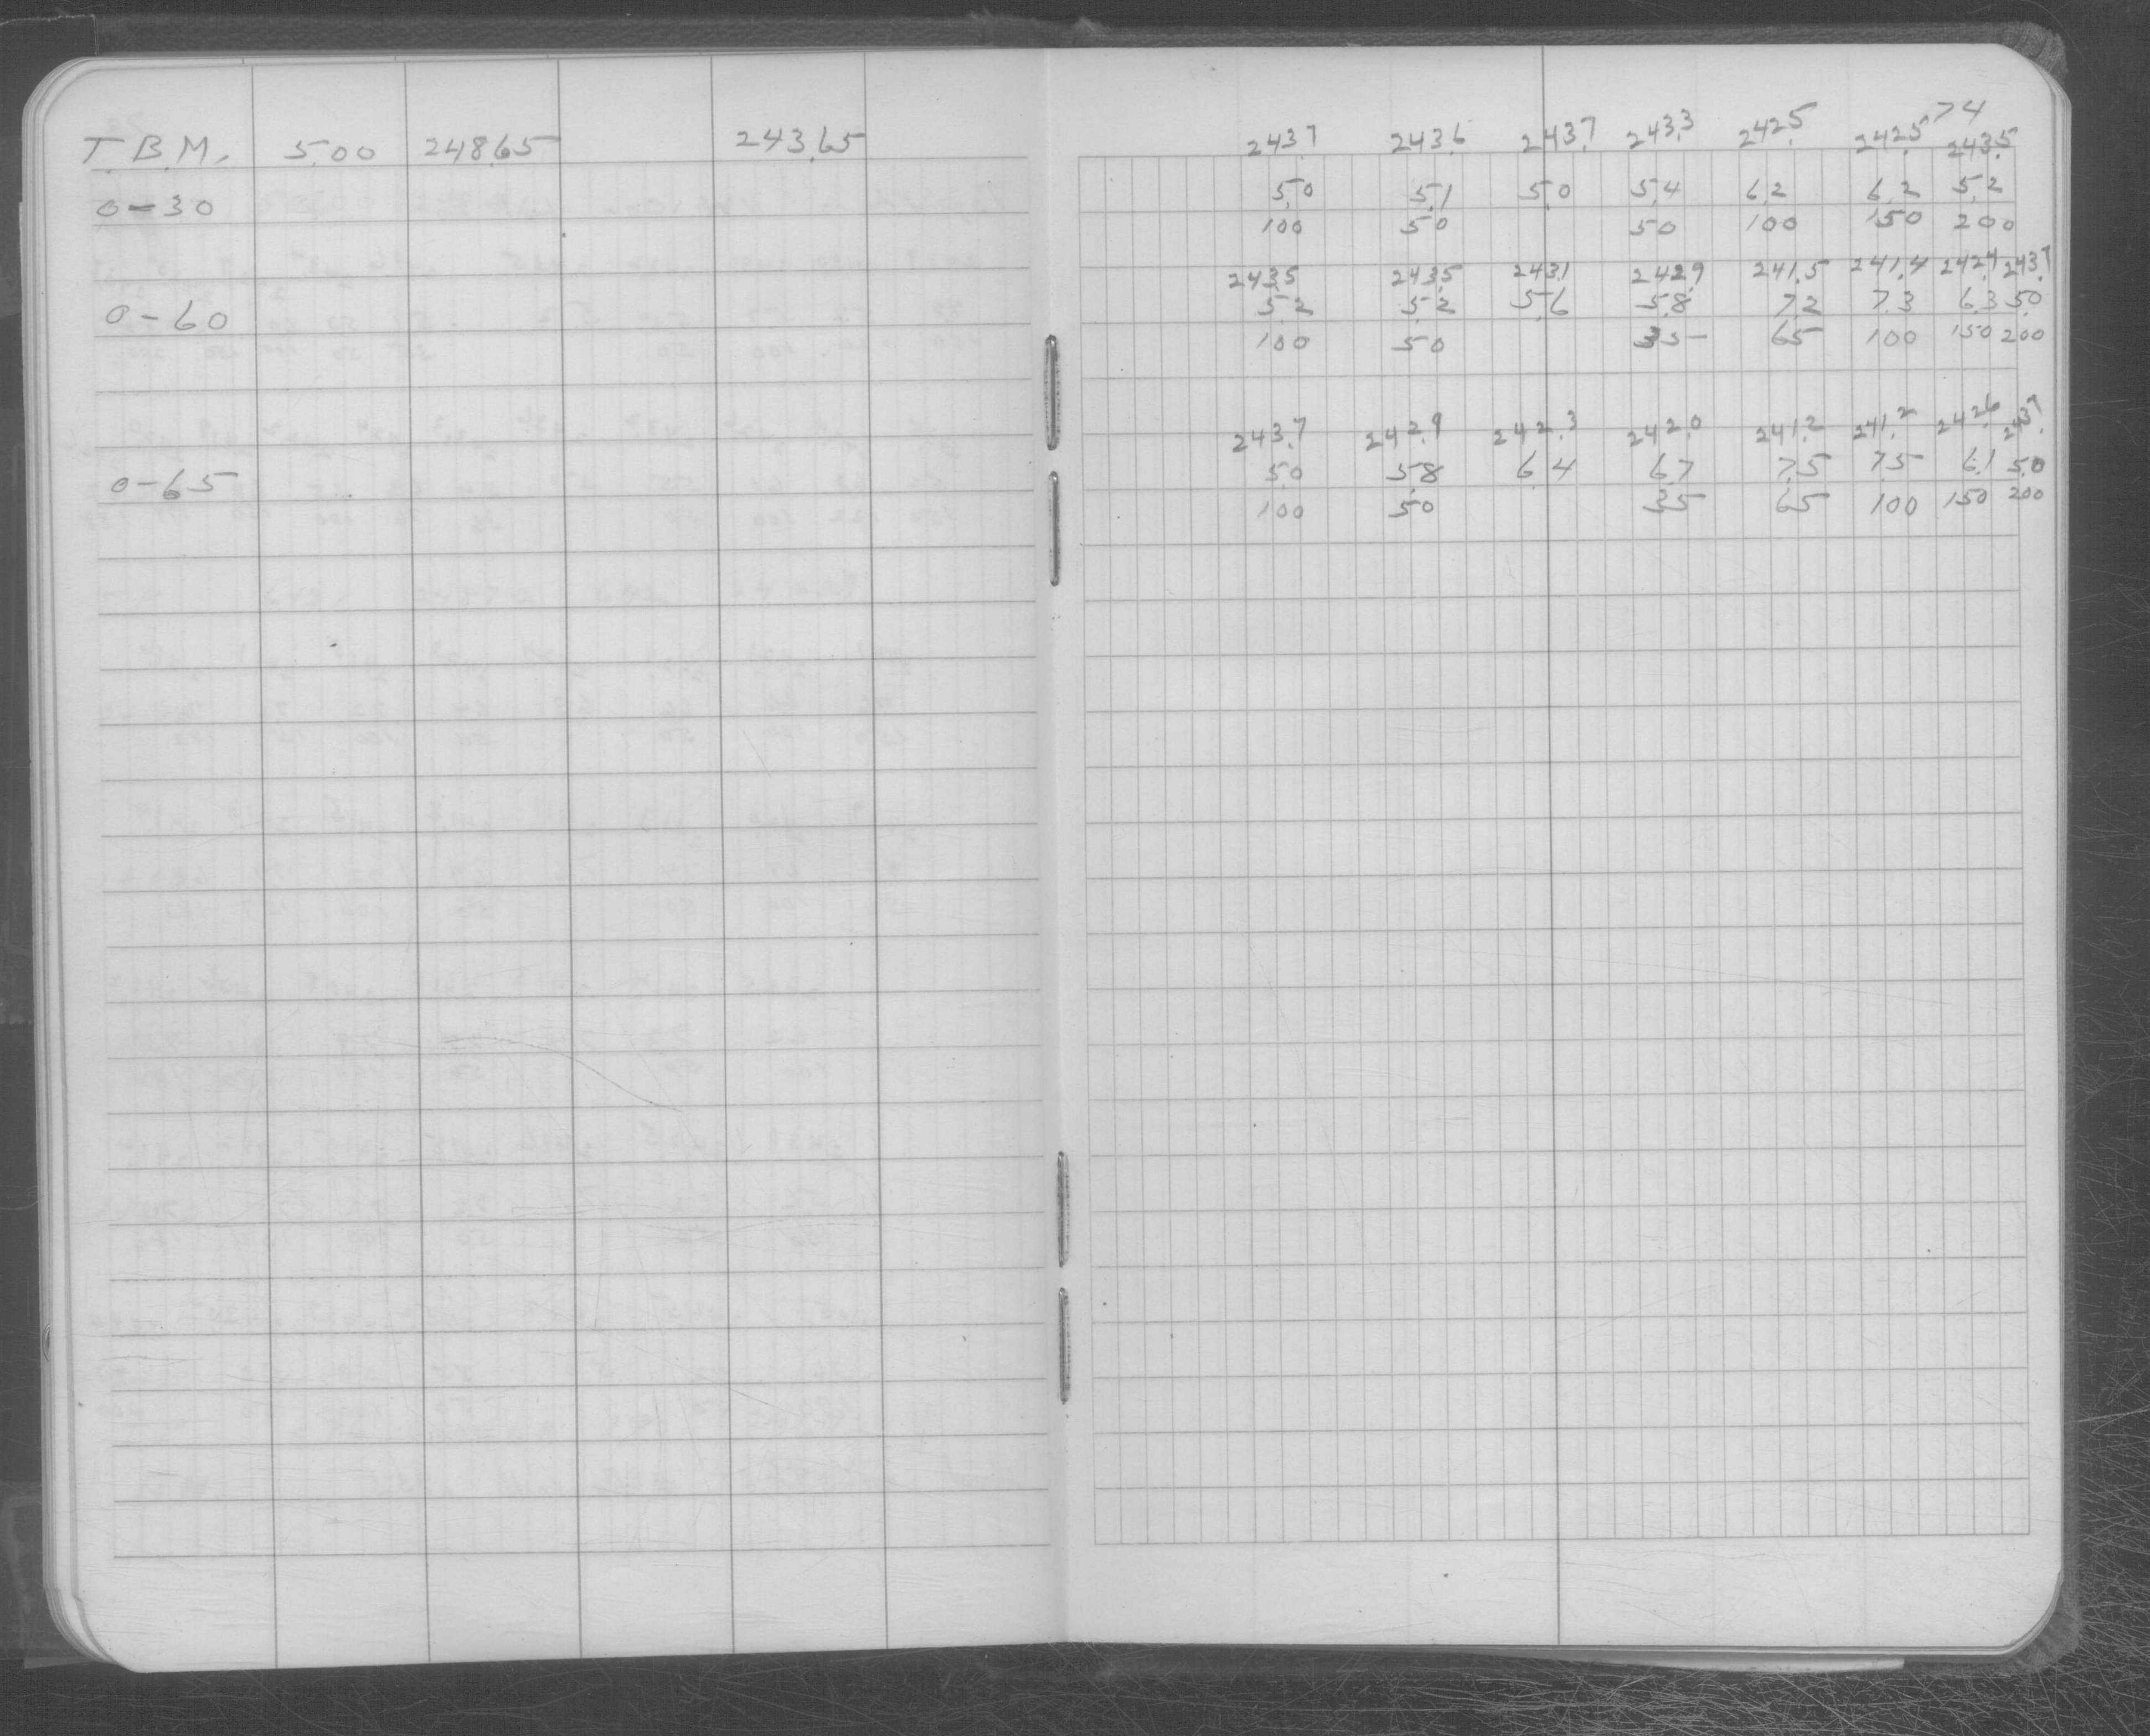 T.B.M. 5.00 248.65 243.65
0-30
0-60
0-65
74
243.7 243.6 243.7 243.3 242.5 242.5 243.5
5.0 5.1 5.0 5.4 6.2 6.2 5.2
100 50 50 100 150 200
243.5 243.5 243.1 242.9 241.5 241.4 242.4 243.7
5.2 5.2 5.6 5.8 7.2 7.3 6.3 5.0
100 50 35 65 100 150 200
243.7 242.9 242.3 242.0 241.2 241.2 242.6 243.7
5.0 5.8 6.4 6.7 7.5 7.5 6.1 5.0
100 50 35 65 100 150 200